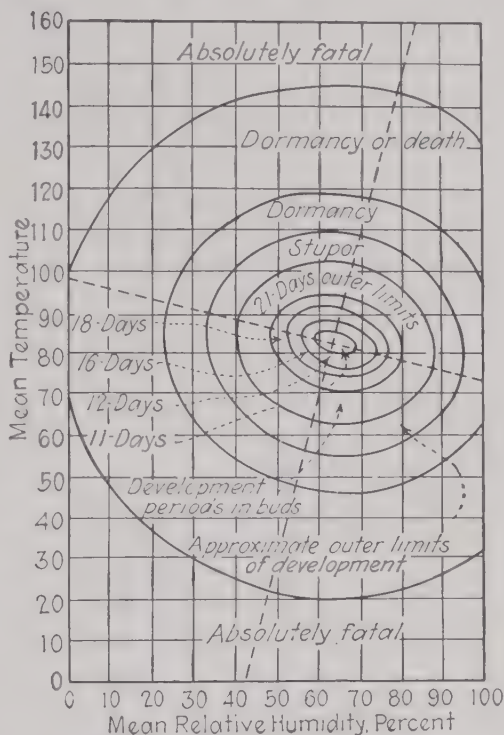 160
150
140
130
120
110
100
90
80
70
60
50
40
30
20
10
0
Mean Temperature
Absolutely fatal
Dormancy or death
Dormancy
Stupor
21-Days outer limits
18-Days
16-Days
12-Days
11-Days
Development
periods in buds
Approximate outer limits
of development
Absolutely fatal
0 10 20 30 40 50 60 70 80 90 100
Mean Relative Humidity, Percent